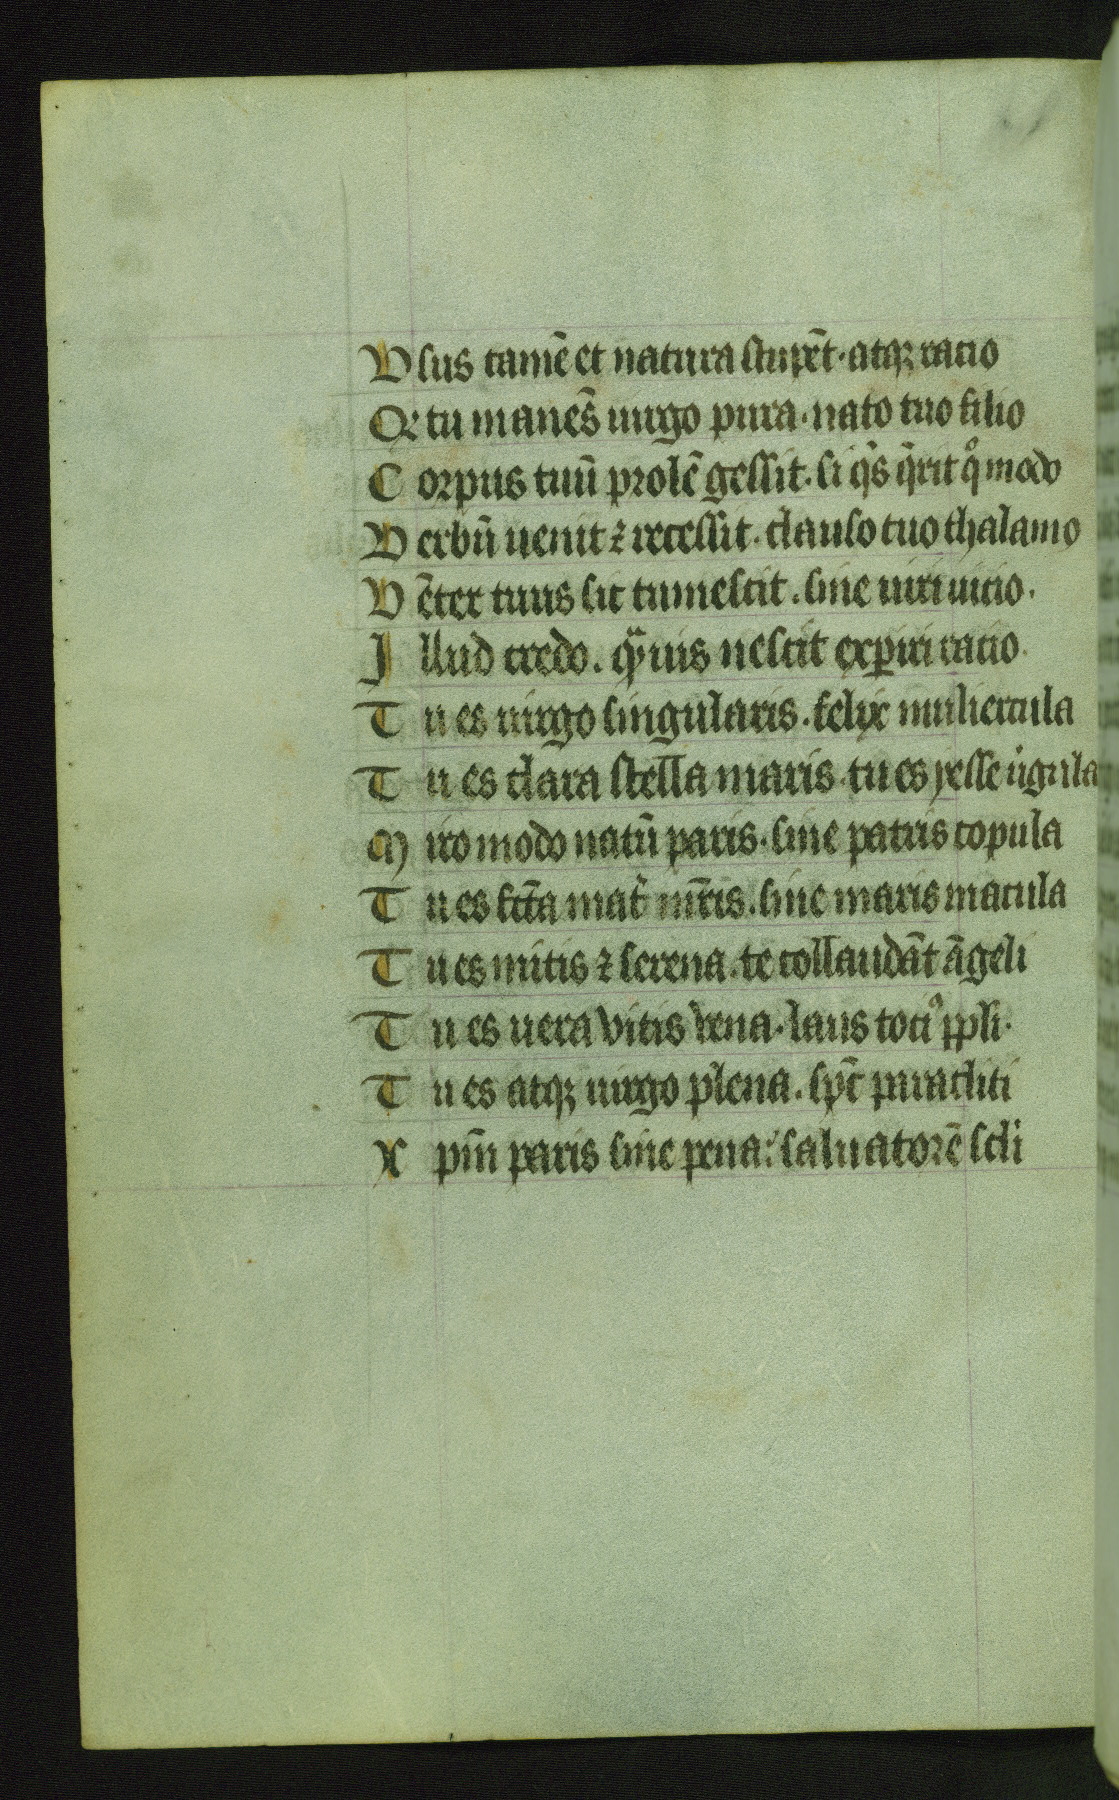 Usus tamē et natura stupēt · atqꝫ ratio
Qꝛ tu manēs uirgo pura · nato tuo filio
Corpus tuū prolē gessit · si qͥs q̄rit qͦmodo
Verbū uenit ⁊ recessit · clauso tuo thalamo
Vēter tuus sic tumescit · sine uiri uicio ·
Illud credo · qͣuis nescit exꝑiri racio ·
Tu es uirgo singularis · felix muliercula
Tu es clara stella maris · tu es jesse uͥgula
Miro modo natū paris · sine patris copula
Tu es fcā mat̄ mr̄is · sine maris macula
Tu es mitis ⁊ serena · te collaudāt āgeli
Tu es uera vitis vena · laus tociꝰ ppli ·
Tu es atqꝫ uirgo plena · spc̄ paracliti
Xpm̄ paris sine pena : saluatorē scli